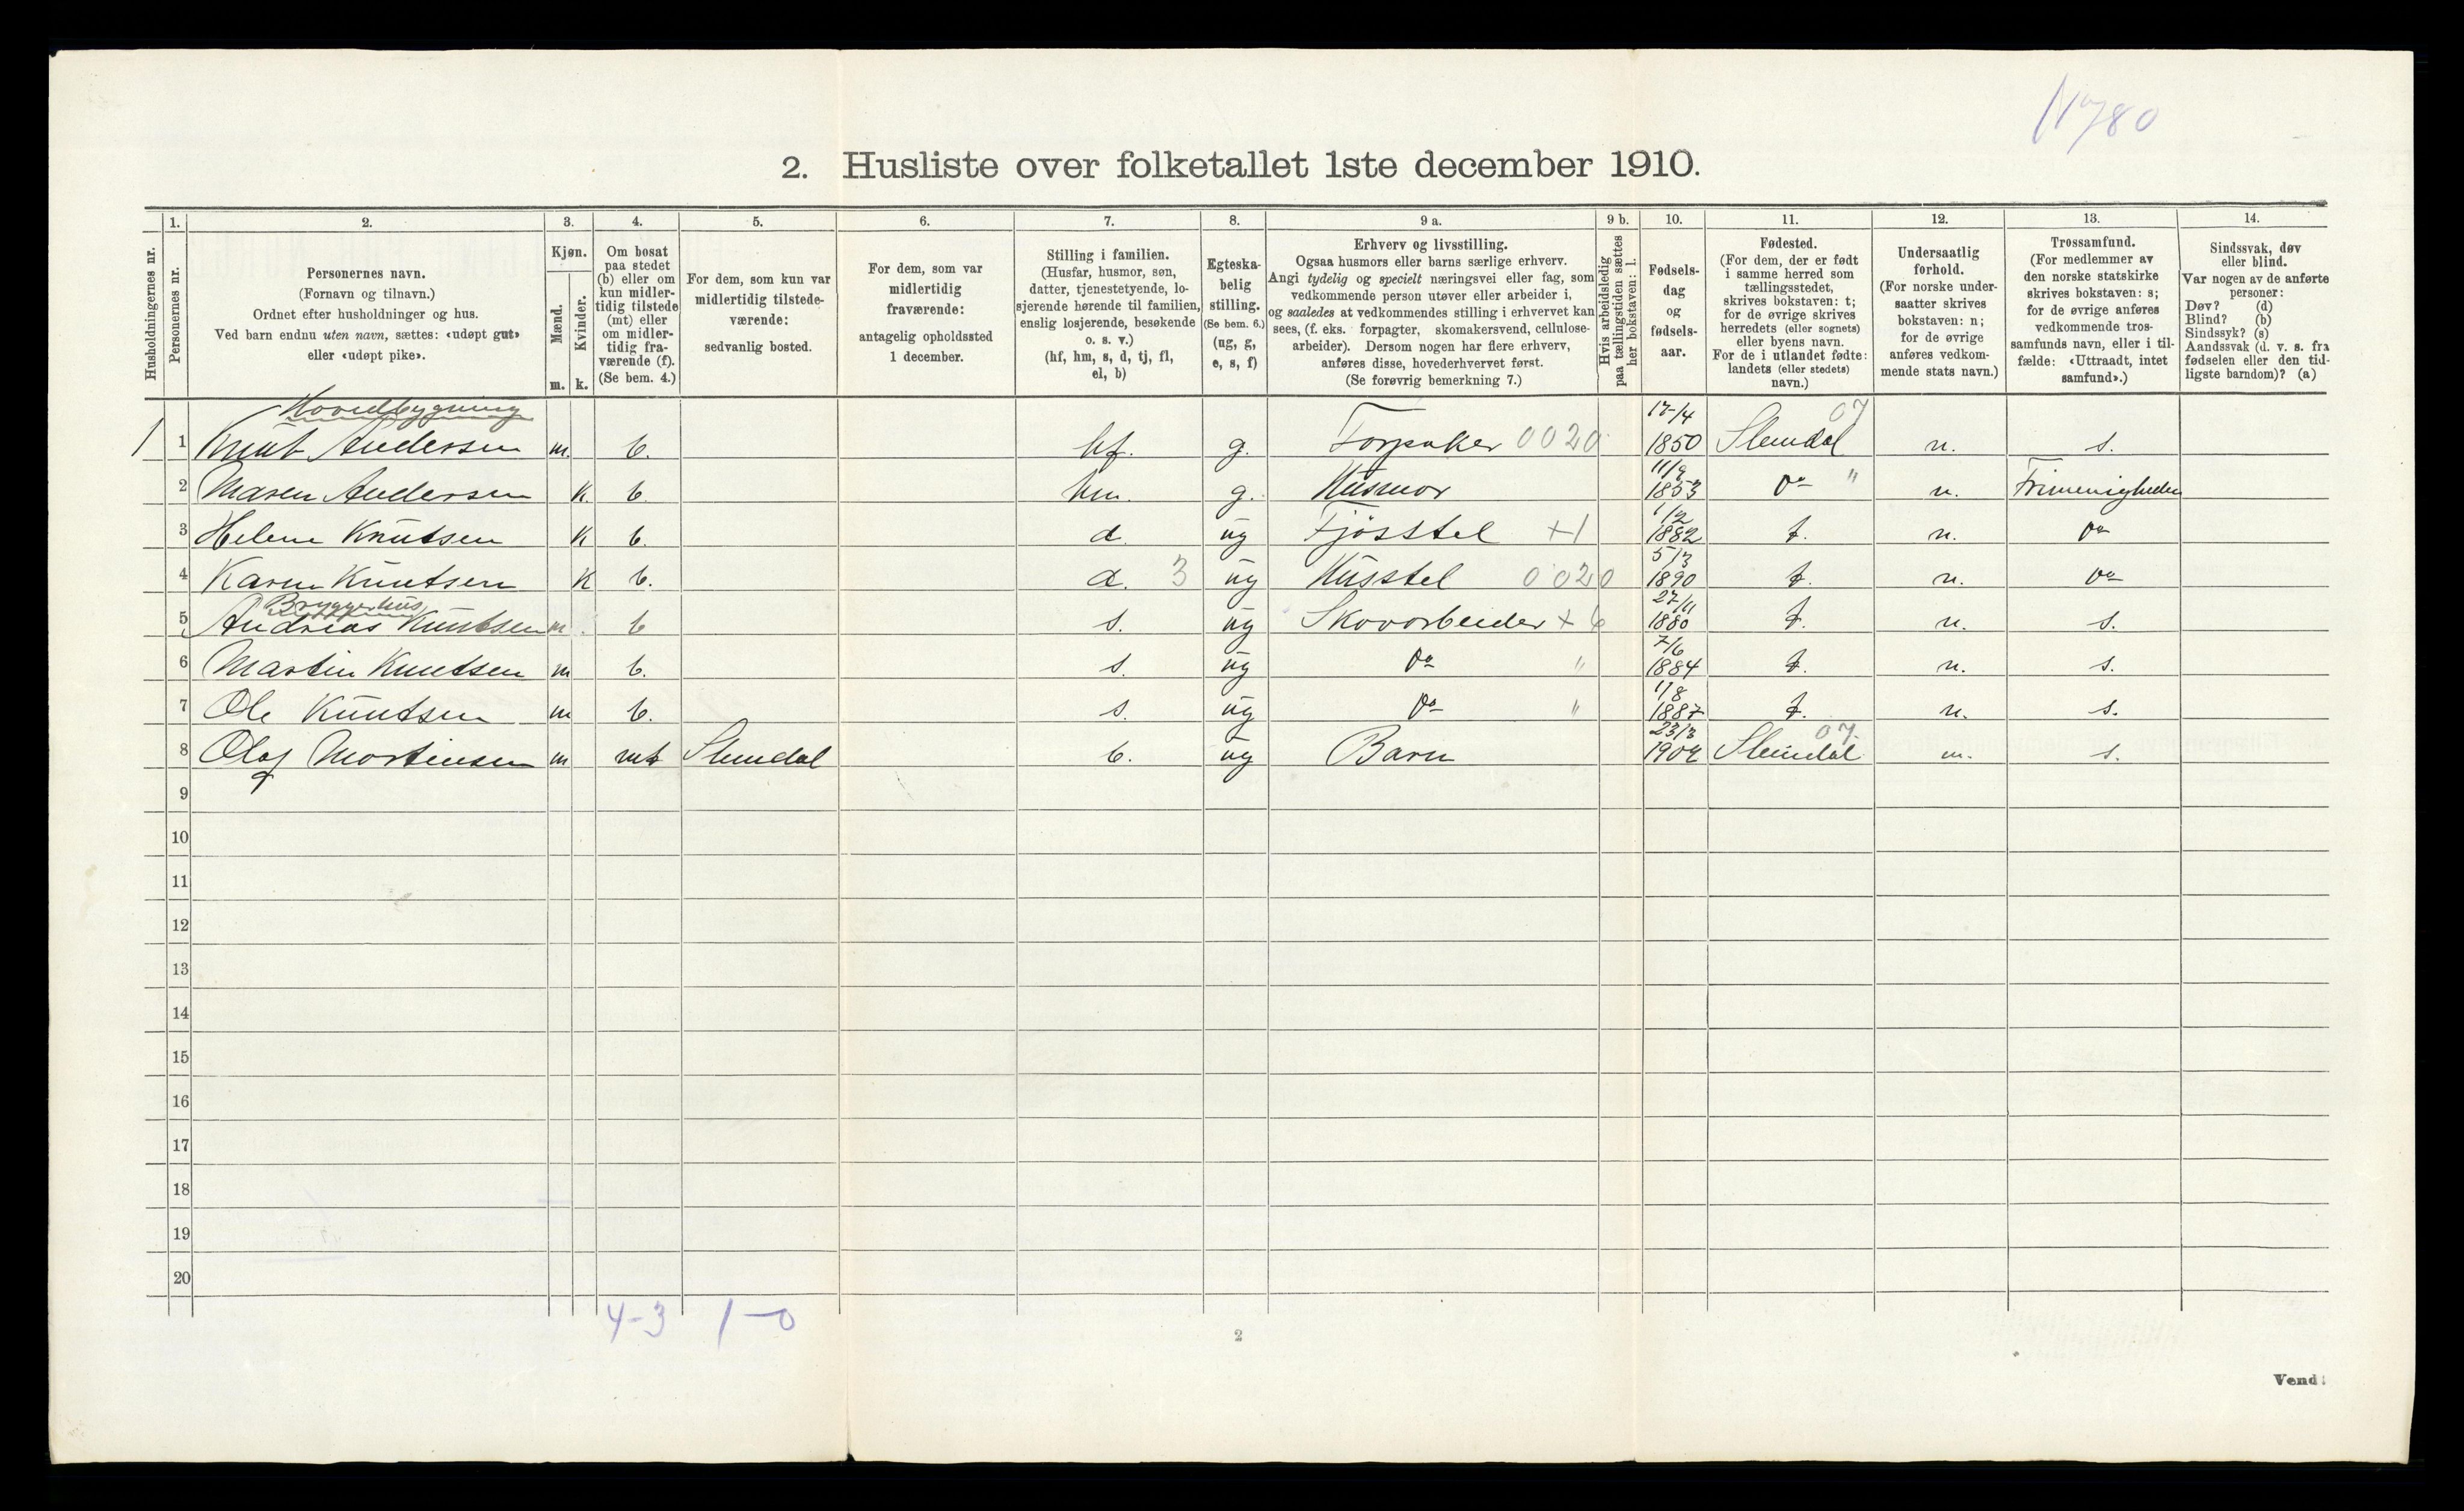 11780
2. Husliste over folketallet 1ste december 1910.
Husholdningernes nr.
1. Personernes nr.
2. Personernes navn.
(Fornavn og tilnavn.)
Ordnet efter husholdninger og hus.
Ved barn endnu uten navn, sættes: «udøpt gut»
eller «udøpt pike».
3. Kjøn.
Mænd. m.
Kvinder. k.
4. Om bosat
paa stedet
(b) eller om
kun midler-
tidig tilstede
(mt) eller
om midler-
tidig fra-
værende (f).
(Se bem. 4.)
5. For dem, som kun var
midlertidig tilstede-
værende:
sedvanlig bosted.
6. For dem, som var
midlertidig
fraværende:
antagelig opholdssted
1 december.
7. Stilling i familien.
(Husfar, husmor, søn,
datter, tjenestetyende, lo-
sjerende hørende til familien,
enslig losjerende, besøkende
o. s. v.)
(hf, hm, s, d, tj, fl,
el, b)
8. Egteska-
belig
stilling.
(Se bem. 6.)
(ug, g,
e, s, f)
9 a. Erhverv og livsstilling.
Ogsaa husmors eller barns særlige erhverv.
Angi tydelig og specielt næringsvei eller fag, som
vedkommende person utøver eller arbeider i,
og saaledes at vedkommendes stilling i erhvervet kan
sees, (f. eks. forpagter, skomakersvend, cellulose-
arbeider). Dersom nogen har flere erhverv,
anføres disse, hovederhvervet først.
(Se forøvrig bemerkning 7.)
9 b. Hvis arbeidsledig
paa tællingstiden sættes
her bokstaven: l.
10. Fødsels-
dag
og
fødsels-
aar.
11. Fødested.
(For dem, der er født
i samme herred som
tællingsstedet,
skrives bokstaven: t;
for de øvrige skrives
herredets (eller sognets)
eller byens navn.
For de i utlandet fødte:
landets (eller stedets)
navn.)
12. Undersaatlig
forhold.
(For norske under-
saatter skrives
bokstaven: n;
for de øvrige
anføres vedkom-
mende stats navn.)
13. Trossamfund.
(For medlemmer av
den norske statskirke
skrives bokstaven: s;
for de øvrige anføres
vedkommende tros-
samfunds navn, eller i til-
fælde: «Uttraadt, intet
samfund».)
14. Sindssvak, døv
eller blind.
Var nogen av de anførte
personer:
Døv? (d)
Blind? (b)
Sindssyk? (s)
Aandssvak (d. v. s. fra
fødselen eller den tid-
ligste barndom)? (a)
Hovedbygning
1 1 Knut Andersen m. b. hf. g. 0020 17/4 1850 Slemdal 07 n. s.
2 Maren Andersen k. b. hm. g. Husmor 11/9 1853 Do " n. Frimenigheden
3 Helene Knutsen k b. d. ug Fjøsstel +1 1/2 1882 t. n. Do
4 Karen Knutsen k b. d. 3 ug Husstel 0020 5/3 1890 t. n. Do
Bryggerhus
5 Andreas Knutsen m. b s. ug Skovarbeider + 6 27/11 1880 t. n. s.
6 Martin Knutsen m b. s. ug Do " 7/6 1884 t. n. s.
7 Ole Knutsen m b. s. ug Do " 1/8 1887 t. n. s.
8 Olaf Mortensen m mt Slemdal b. ug Barn 23/3 Slemdal 07 n. s.
9
10
11
12
13
14
15
16
17
18
19
20
4-3 1-0
2
Vend!